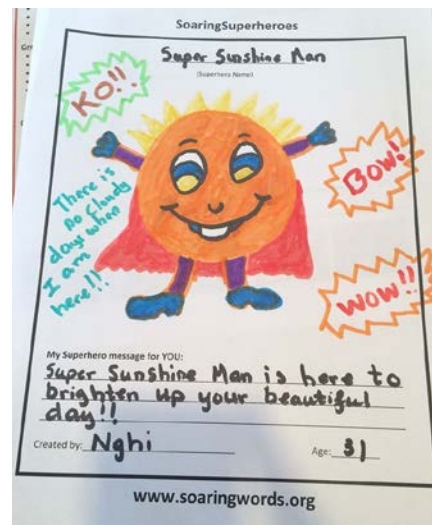 SoaringSuperheroes
Super Sunshine Man
(Superhero Name)
KO!!
BOW!
There is
no Clouds
day when
I am
here!!
WOW!!
My Superhero message for YOU:
Super Sunshine Man is here to
brighten up your beautiful
day!!
Created by: Nghi
Age: 31
www.soaringwords.org